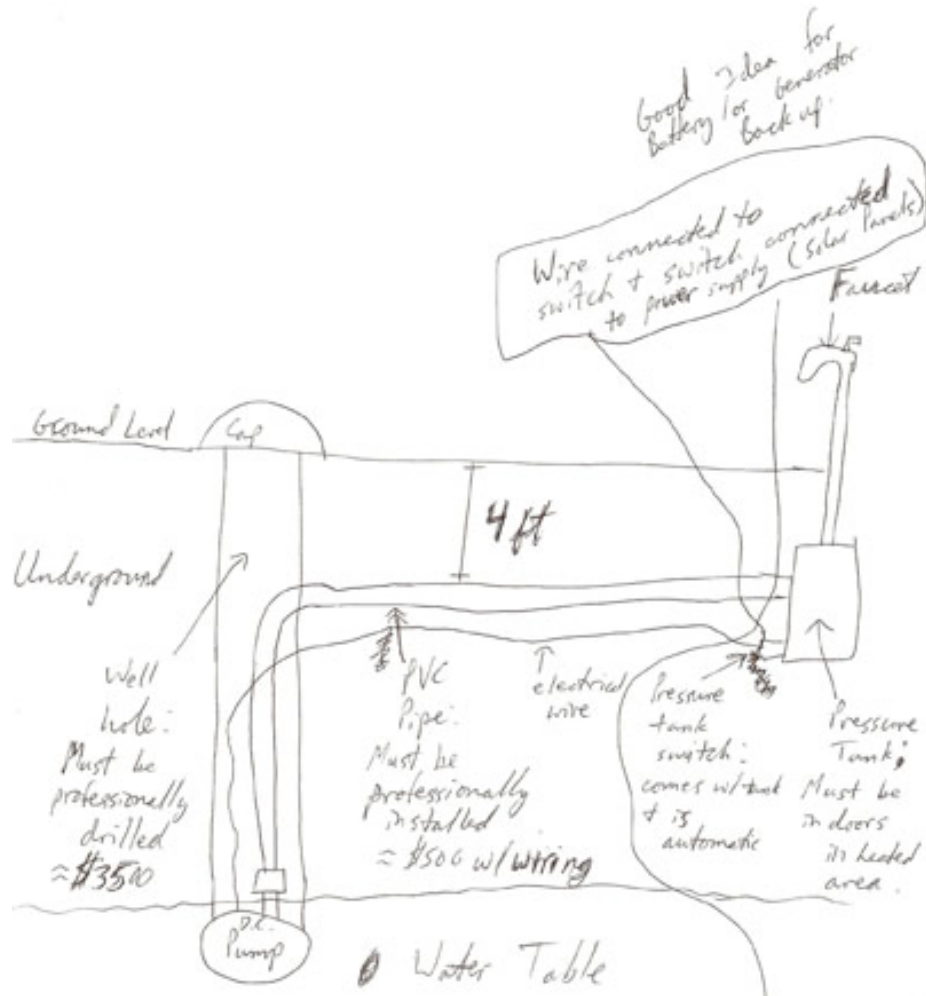 Good Idea for
Battery/or Generator
Back up.
Wire connected to
switch + switch connected
to power supply (Solar Panels)
Faucet
Ground Level
Cap
4 ft
Underground
Well
hole:
Must be
professionally
drilled
≈ $3500
PVC
Pipe:
Must be
professionally
installed
≈ $500 w/wiring
electrical
wire
Pressure
tank
switch:
comes w/tank
+ is
automatic
Pressure
Tank;
Must be
indoors
in heated
area.
D.C.
Pump
Water Table